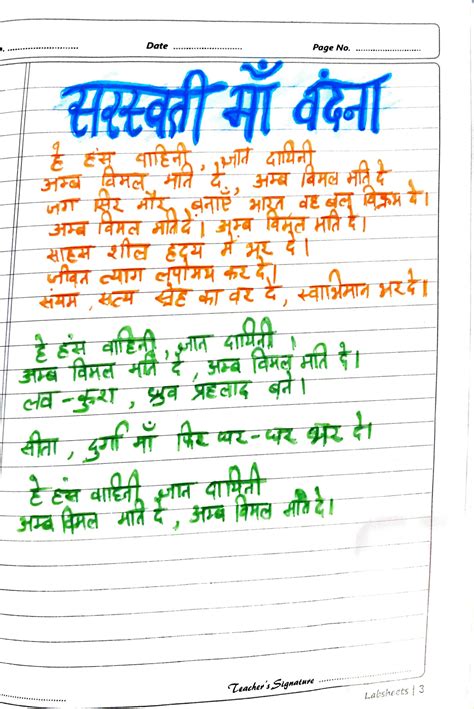 Date
Page No.
सरस्वती माँ वंदना
हे हंस वाहिनी, ज्ञान दायिनी
अम्ब विमल मति दे, अम्ब विमल मति दे
जग सिर मौर बनाएँ भारत वह बल विक्रम दे।
अम्ब विमल मति दे। अम्ब विमल मति दे।
साहस शील हृदय में भर दे।
जीवन त्याग तपोमय कर दे।
संयम, सत्य स्नेह का वर दे, स्वाभिमान भर दे।
हे हंस वाहिनी, ज्ञान दायिनी।
अम्ब विमल मति दे, अम्ब विमल मति दे।
लव - कुश, ध्रुव प्रहलाद बने।
सीता, दुर्गा माँ फिर घर-घर भर दे।
हे हंस वाहिनी ज्ञान दायिनी
अम्ब विमल मति दे, अम्ब विमल मति दे।
Teacher's Signature
Labsheets | 3